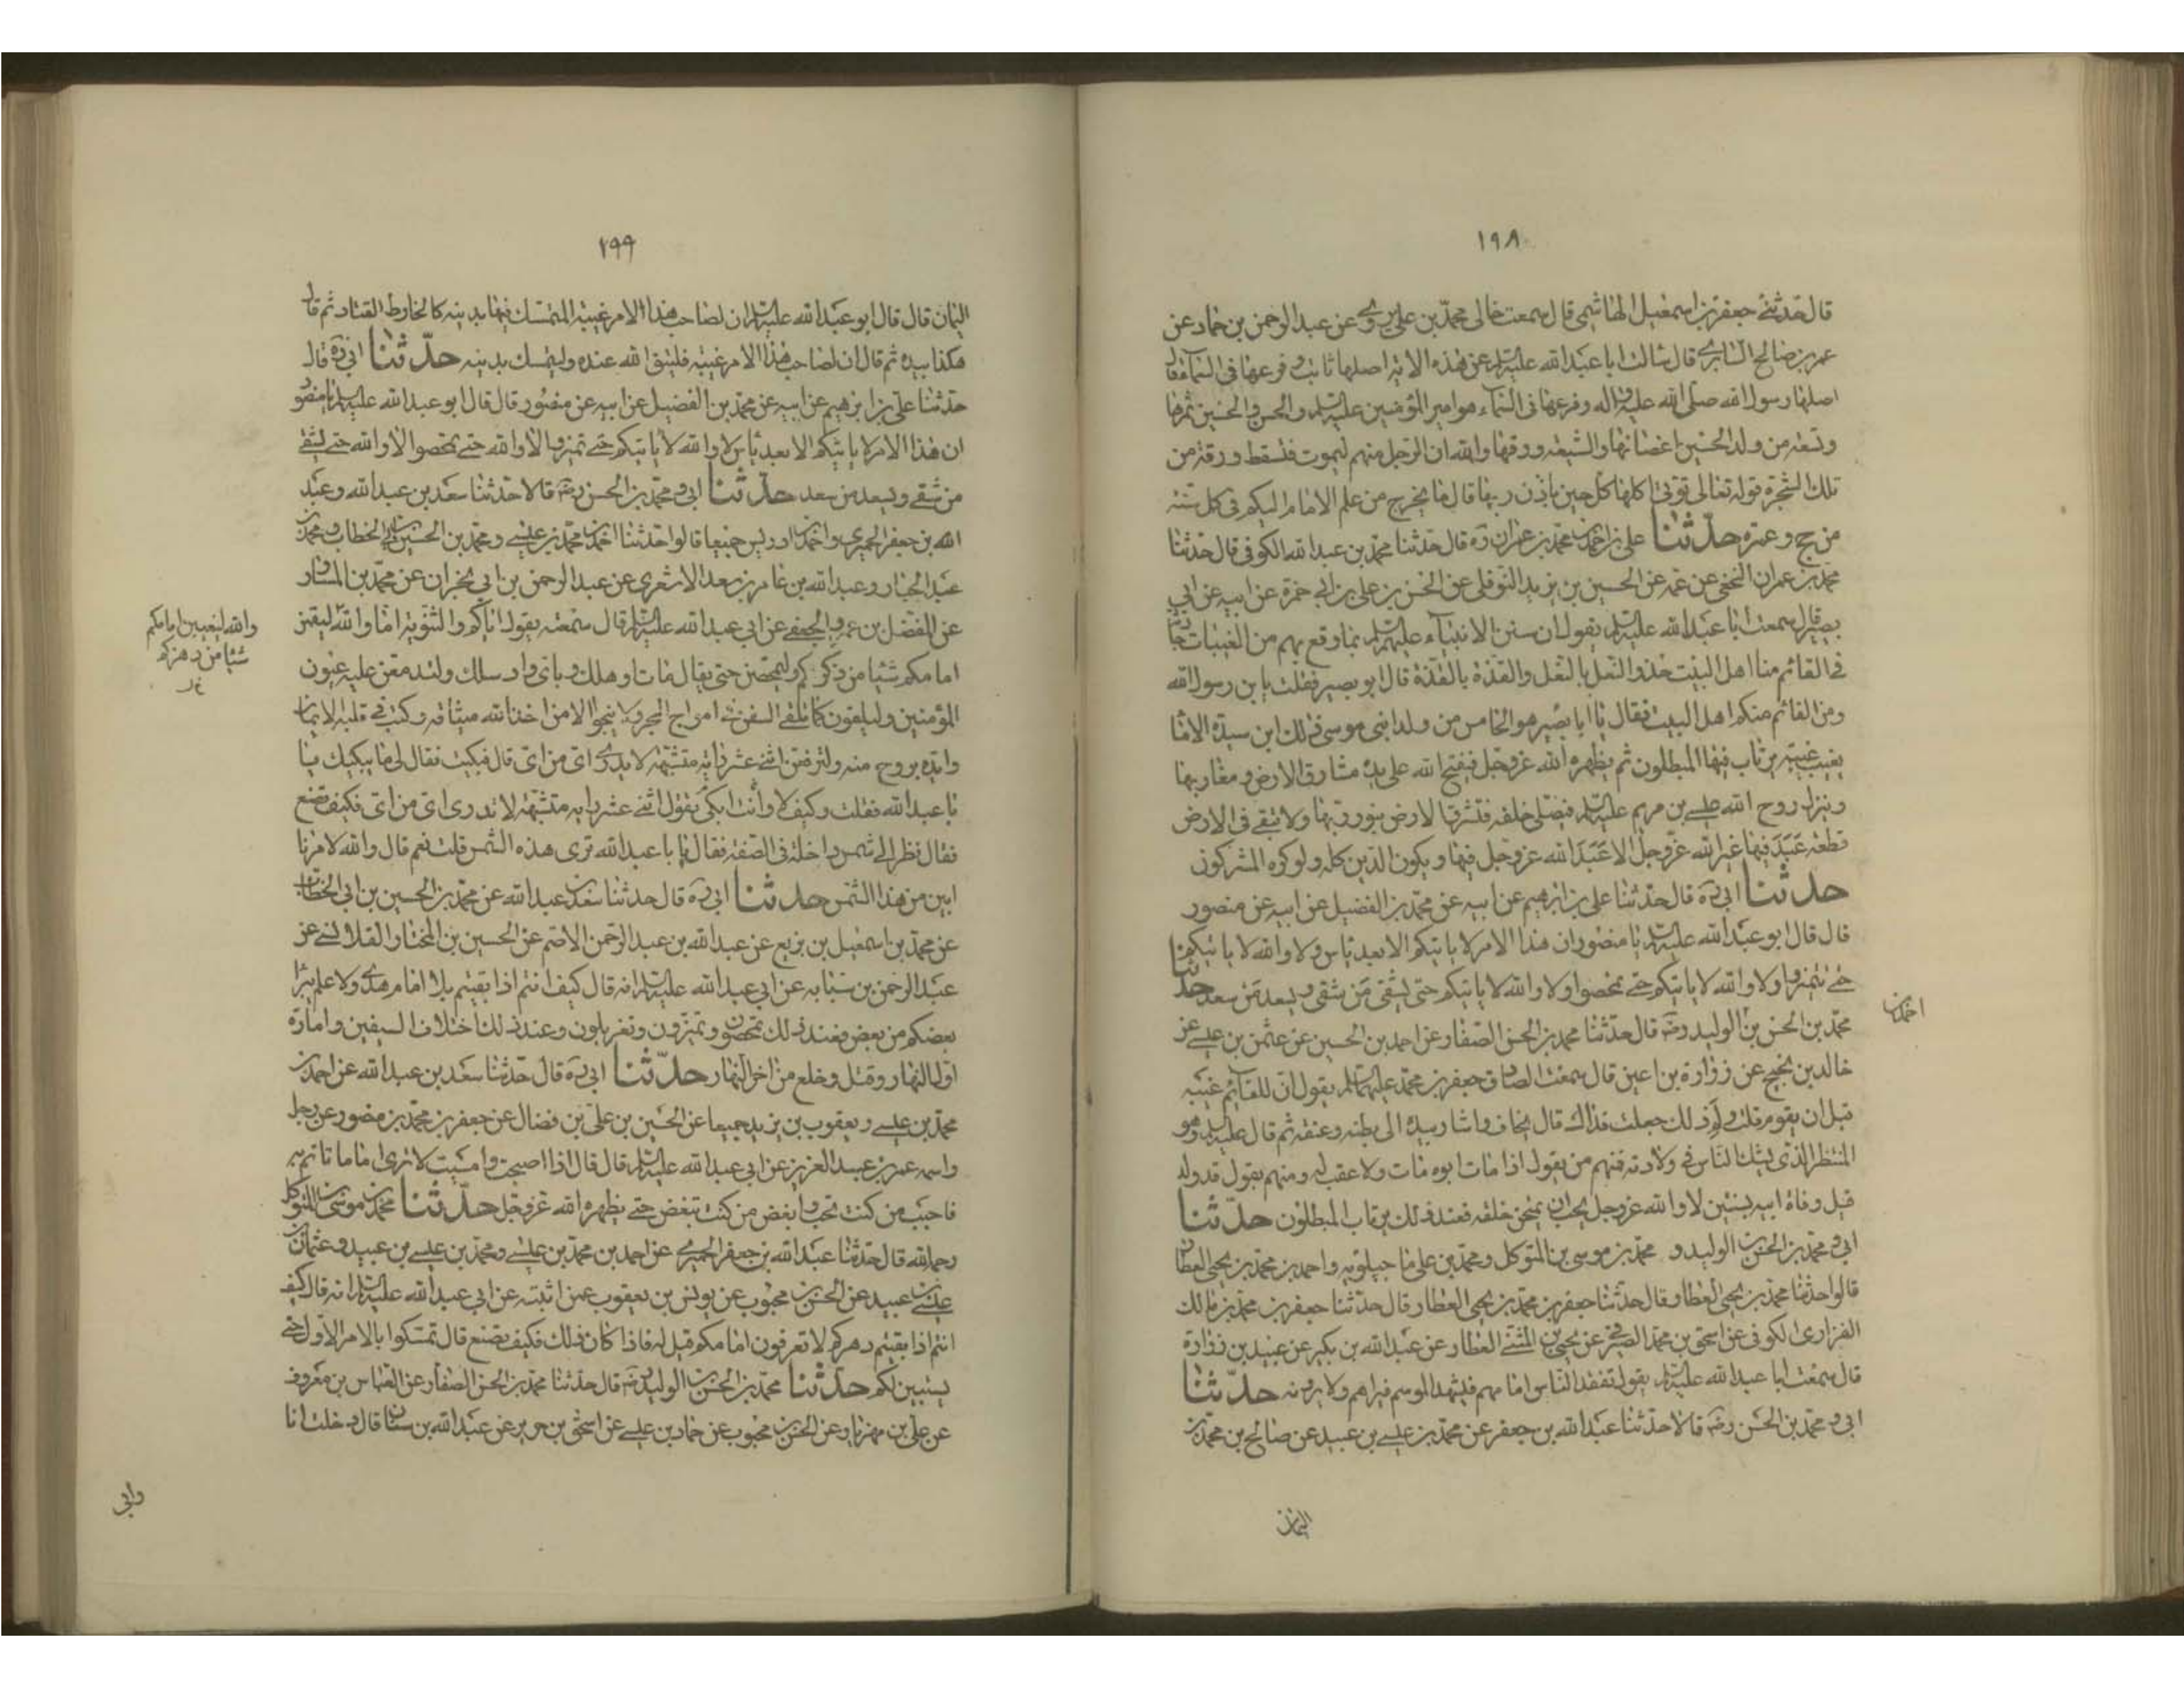 ١٩٨
قال حدثنى جعفر بن اسمعيل الهاشمى قال سمعت خالى محمد بن على يروى عن عبد الرحمن بن حماد عن
عمر بن صالح السابرى قال سالت ابا عبد الله عليه السلم عن هذه الاية اصلها ثابت وفرعها فى السماء فقال
اصلها رسول الله صلى الله عليه واله وفرعها فى السماء هو امير المؤمنين عليه السلم والحسن والحسين ثمرها
وتسعة من ولد الحسين اغصانها والشيعة ورقها والله ان الرجل منهم ليموت فتسقط ورقة من
تلك الشجرة قوله تعالى تؤتى اكلها كل حين باذن ربها قال ما يخرج من علم الامام اليكم فى كل سنة
من حج وعمرة حدثنا على بن احمد بن محمد بن عمران ره قال حدثنا محمد بن عبد الله الكوفى قال حدثنا
محمد بن عمران النخعى عن عمه عن الحسين بن يزيد النوفلى عن الحسن بن على بن ابى حمزة عن ابيه عن ابى
بصير قال سمعت ابا عبد الله عليه السلم يقول ان سنن الانبياء عليهم السلم بما وقع بهم من الغيبات حادثة
فى القائم منا اهل البيت حذو النعل بالنعل والقذة بالقذة قال ابو بصير فقلت يا بن رسول الله
ومن القائم منكم اهل البيت فقال يا ابا بصير هو الخامس من ولد ابنى موسى ذلك ابن سيدة الاما
يغيب غيبة يرتاب فيها المبطلون ثم يظهره الله عز وجل فيفتح الله على يده مشارق الارض ومغاربها
وينزل روح الله عيسى بن مريم عليه السلم فيصلى خلفه فتشرق الارض بنور ربها ولا تبقى فى الارض
قطعة عبد فيها غير الله عز وجل الا عبد الله عز وجل فيها ويكون الدين كله ولو كره المشركون
حدثنا ابى ره قال حدثنا على بن ابرهيم عن ابيه عن محمد بن الفضيل عن ابيه عن منصور
قال قال ابو عبد الله عليه السلم يا منصور ان هذا الامر لا ياتيكم الا بعد ياس ولا والله لا ياتيكم
حتى تميزوا ولا والله لا ياتيكم حتى تمحصوا ولا والله لا ياتيكم حتى يشقى من شقى ويسعد من سعد حدثنا
احمد بن
محمد بن الحسن بن الوليد رضه قال حدثنا محمد بن الحسن الصفار عن احمد بن الحسين عن عثمن بن عيسى عن
خالد بن نجيح عن زرارة بن اعين قال سمعت الصادق جعفر بن محمد عليهما السلم يقول ان للقائم غيبة
قبل ان يقوم قلت ولم ذلك جعلت فداك قال يخاف واشار بيده الى بطنه وعنقه ثم قال عليه السلم وهو
المنتظر الذى يشك الناس فى ولادته فمنهم من يقول اذا مات ابوه مات ولا عقب له ومنهم يقول قد ولد
قبل وفاة ابيه بسنتين لا والله عز وجل يحب ان يمتحن خلقه فعند ذلك يرتاب المبطلون حدثنا
ابى ومحمد بن الحسن بن الوليد و محمد بن موسى بن المتوكل ومحمد بن على ماجيلويه واحمد بن محمد بن يحيى العطار
قالوا حدثنا محمد بن يحيى العطار وقال حدثنا جعفر بن محمد بن يحيى العطار وقال حدثنا جعفر بن محمد بن مالك
الفزارى الكوفى عن اسحق بن محمد الصيرفى عن يحيى بن المثنى العطار عن عبد الله بن بكير عن عبيد بن زرارة
قال سمعت ابا عبد الله عليه السلم يقول تفقد الناس امامهم فيشهد الموسم فيراهم ولا يرونه حدثنا
ابى ومحمد بن الحسن رضه قالا حدثنا عبد الله بن جعفر عن محمد بن عيسى بن عبيد عن صالح بن محمد بن
اليمان
١٩٩
اليمان قال قال ابو عبد الله عليه السلم ان لصاحب هذا الامر غيبة المتمسك فيها بدينه كالخارط القتاد ثم قال
هكذا بيده ثم قال ان لصاحب هذا الامر غيبة فليتق الله عنده وليتمسك بدينه حدثنا ابى ره قال
حدثنا على بن ابرهيم عن ابيه عن محمد بن الفضيل عن ابيه عن منصور قال قال ابو عبد الله عليه السلم يا منصور
ان هذا الامر لا ياتيكم الا بعد ياس لا والله لا ياتيكم حتى تميزوا لا والله حتى تمحصوا لا والله حتى يشقى
من شقى ويسعد من سعد حدثنا ابى ومحمد بن الحسن رضه قالا حدثنا سعد بن عبد الله وعبد
الله بن جعفر الحميرى واحمد بن ادريس جميعا قالوا حدثنا احمد بن محمد بن عيسى ومحمد بن الحسين بن ابى الخطاب ومحمد بن
عبد الجبار وعبد الله بن عامر بن سعد الاشعرى عن عبد الرحمن بن ابى نجران عن محمد بن المساور
عن المفضل بن عمر الجعفى عن ابى عبد الله عليه السلم قال سمعته يقول اياكم والتنويه اما والله ليقيمن
والله ليغيبن امامكم
شيئا من دهركم
امامكم شيئا من ذكركم وليمحصن حتى يقال مات او هلك وباى واد سلك ولتدمعن عليه عيون
المؤمنين وليلقون كما تلقى السفن فى امواج البحر ولا ينجوا الا من اخذ الله ميثاقه وكتب فى قلبه الايمان
وايده بروح منه ولترفعن اثنى عشر راية مشتبهة لا يدرى اى من اى قال فبكيت فقال لى ما يبكيك يا
با عبد الله فقلت وكيف لا وانت ابكى يقول اثنى عشر راية مشتبهة لا تدرى اى من اى فكيف تصنع
فقال نظر الى شمس داخلة فى الصفة فقال يا با عبد الله ترى هذه الشمس قلت نعم قال والله لامرنا
ابين من هذا الشمس حدثنا ابى ره قال حدثنا سعد بن عبد الله عن محمد بن الحسين بن ابى الخطاب
عن محمد بن اسمعيل بن بزيع عن عبد الله بن عبد الرحمن الاصم عن الحسين بن المختار القلانسى عن
عبد الرحمن بن سيابه عن ابى عبد الله عليه السلم انه قال كيف انتم اذا بقيتم بلا امام هدى ولا علم يبرا
بعضكم من بعض فعند ذلك تمحصون وتميزون وتغربلون وعند ذلك اختلاف السيفين وامارة
اول النهار وقتل وخلع من اخر النهار حدثنا ابى ره قال حدثنا سعد بن عبد الله عن احمد بن
محمد بن عيسى ويعقوب بن يزيد جميعا عن الحسين بن على بن فضال عن جعفر بن محمد بن منصور عن رجل
واسمه عمر بن عبد العزيز عن ابى عبد الله عليه السلم قال قال اذا اصبحت وامسيت لا ترى اماما تاتم به
فاحبب من كنت تحب وابغض من كنت تبغض حتى يظهره الله عز وجل حدثنا محمد بن موسى بن المتوكل
رحمه الله قال حدثنا عبد الله بن جعفر الحميرى عن احمد بن محمد بن عيسى ومحمد بن عيسى بن عبيد وعثمان
عيسى بن عبيد عن الحسن بن محبوب عن يونس بن يعقوب عمن اثبته عن ابى عبد الله عليه السلم انه قال كيف
انتم اذا بقيتم دهركم لا تعرفون امامكم قيل له فاذا كان ذلك فكيف نصنع قال تمسكوا بالامر الاول حتى
يستبين لكم حدثنا محمد بن الحسن بن الوليد رضه قال حدثنا محمد بن الحسن الصفار عن العباس بن معروف
عن على بن مهزيار عن الحسن بن محبوب عن حماد بن عيسى عن اسحق بن جرير عن عبد الله بن سنان قال دخلت انا
وابى